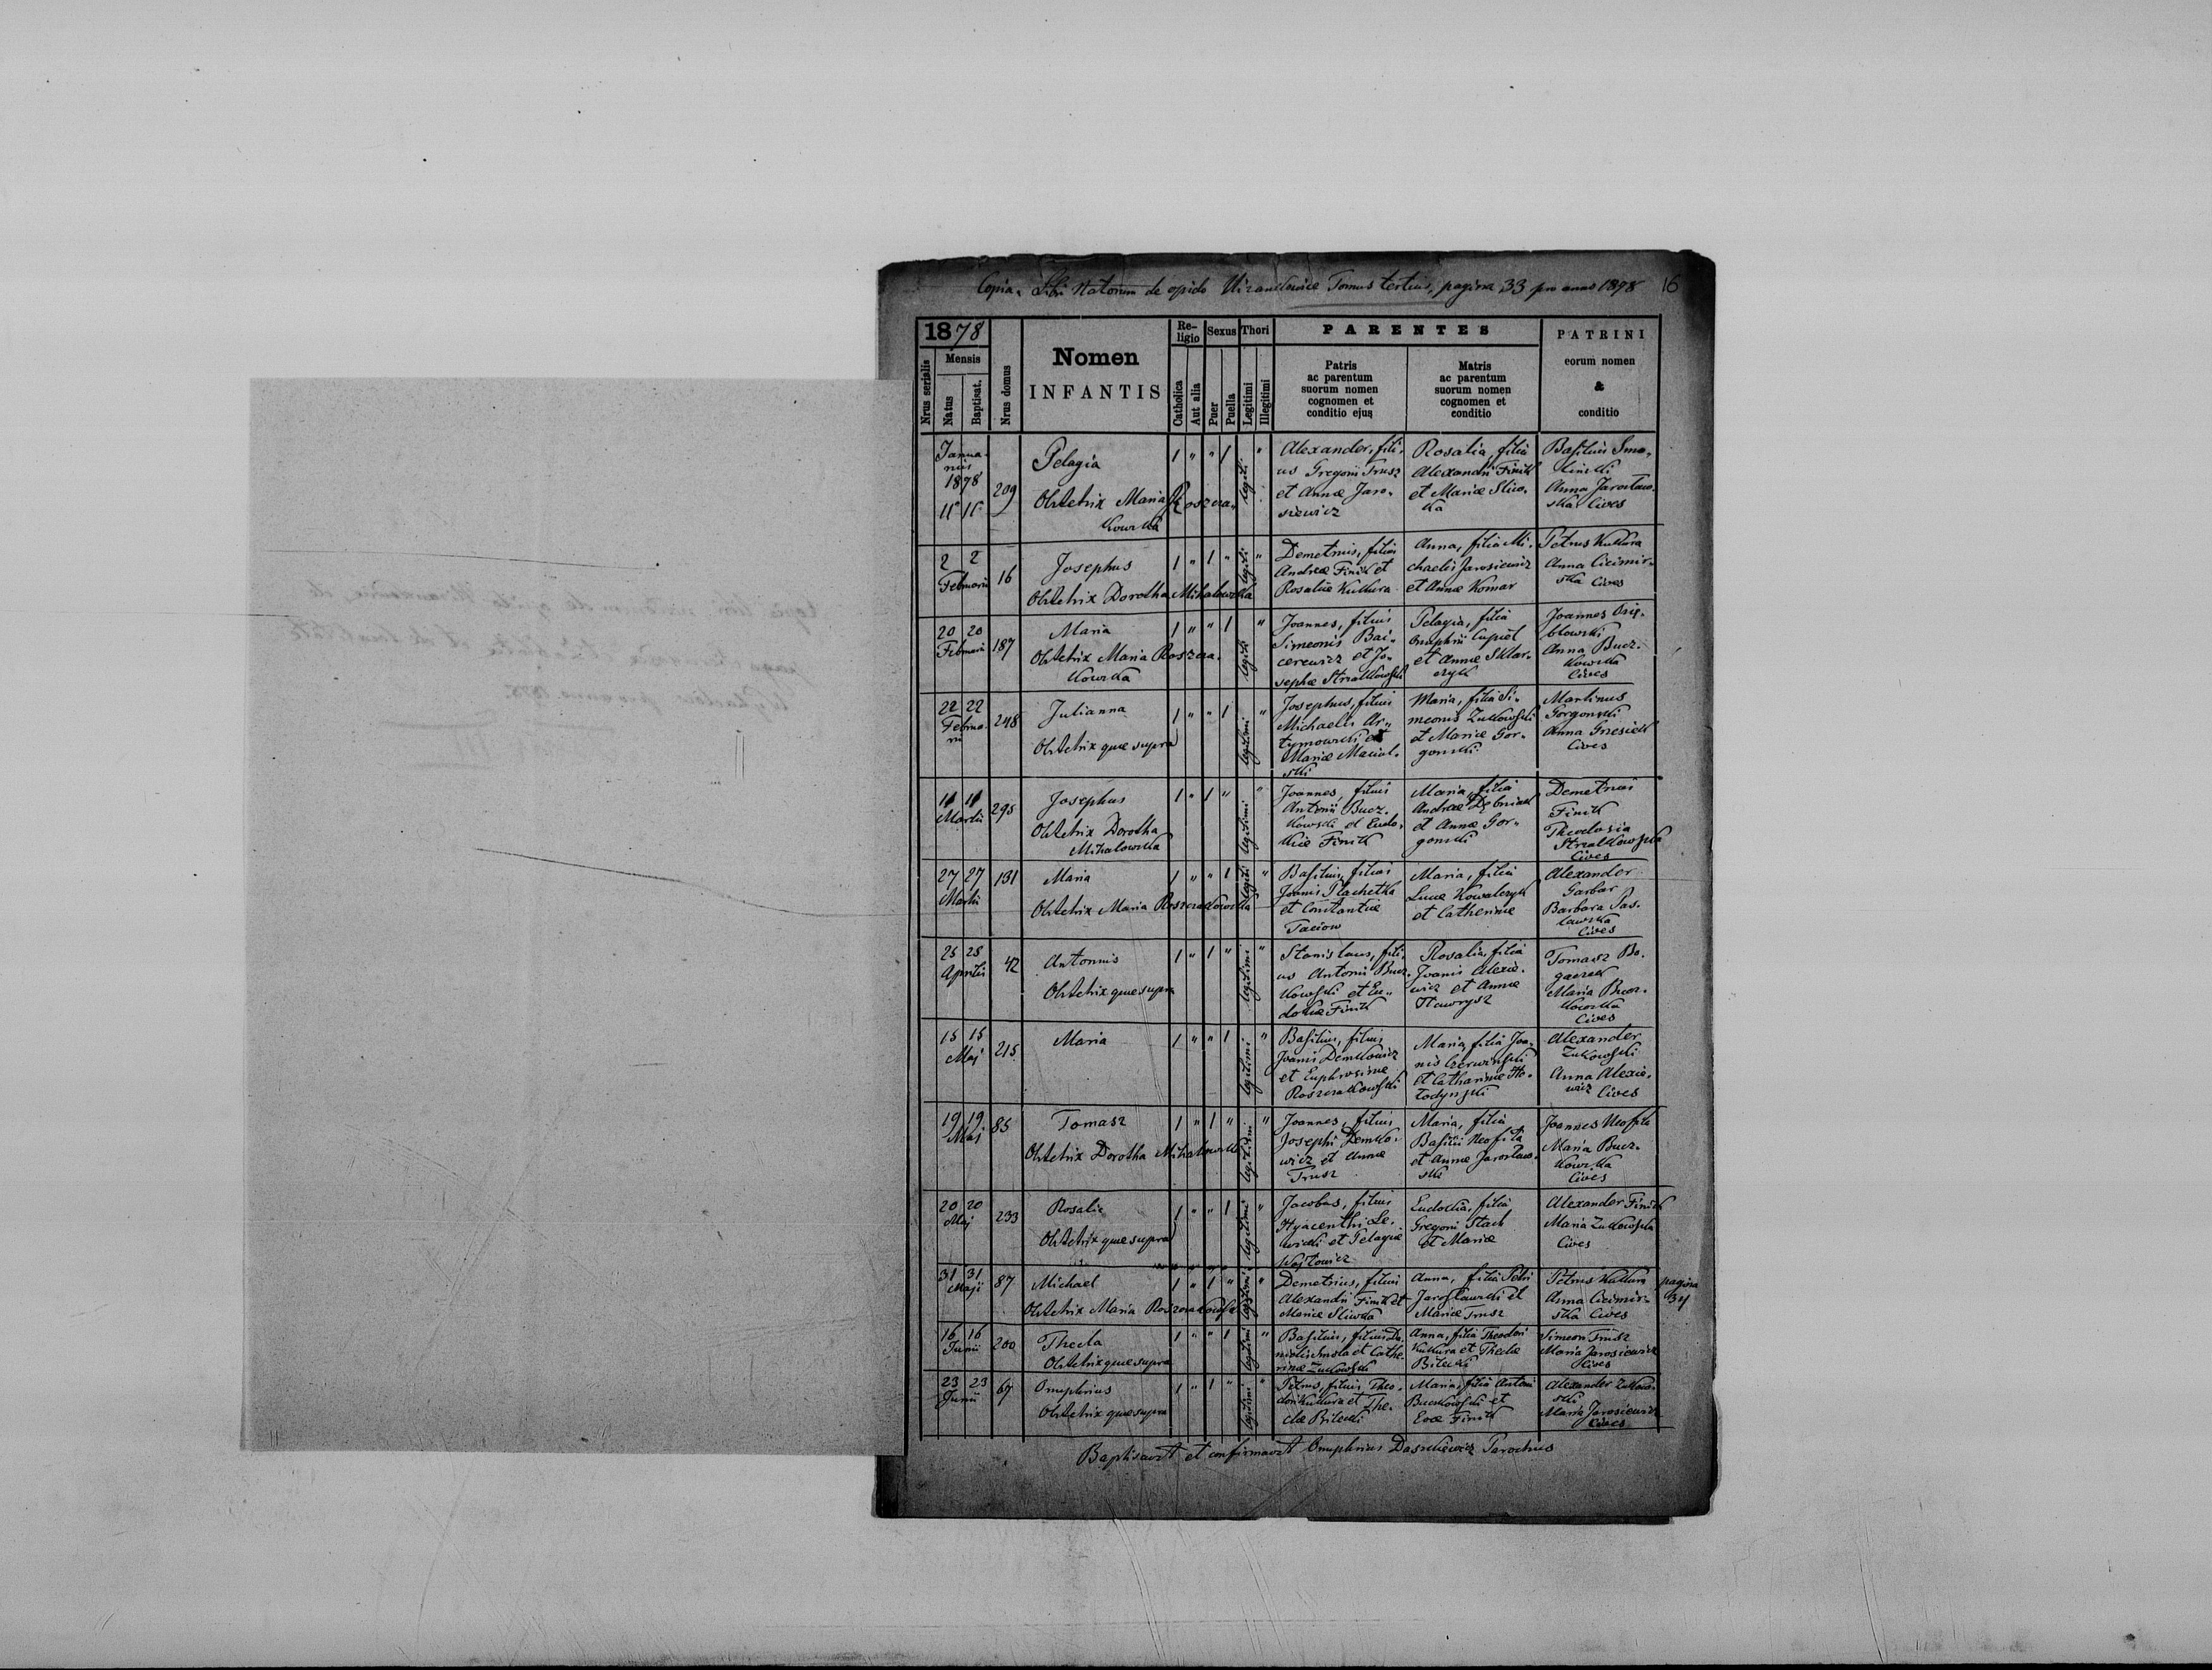 Copia Libri Natorum de opido Uizandowice Tomus tertius, pagina 33 pro anno 1878 16
1878
Nrus serialis
Mensis
Natus
Baptisat.
Nrus domus
Nomen
INFANTIS
Re-
ligio
Catholica
Aut alia
Sexus
Puer
Puella
Thori
Legitimi
Illegitimi
PARENTES
Patris
ac parentum
suorum nomen
cognomen et
conditio ejus
Matris
ac parentum
suorum nomen
cognomen et
conditio
PATRINI
eorum nomen
&
conditio
Janua-
rius
1878
11 11
209
Pelagia
Obstetrix Maria Roszcza-
kowska
1 " " 1 legiti "
Alexander, fili-
us Gregorii Trusz
et Annæ Jaro-
siewicz
Rosalia, filia
Alexandri Finik
et Mariæ Sliw-
ka
Basilius Smo-
linski
Anna Jarosław-
ska Cives
2 2
Februarii
16
Josephus
Obstetrix Dorotha Mihalowska
1 " 1 " legiti "
Demetrius, filius
Andreæ Finik et
Rosaliæ Kukura
Anna, filia Mi-
chaelis Jarosiewicz
et Annæ Komar
Petrus Kukura
Anna Cicimir-
ska Cives
20 20
Februarii
187
Maria
Obstetrix Maria Roszcza-
kowska
1 " " 1 legiti "
Joannes, filius
Simeonis Bai-
cerewicz et Jo-
sephæ Strzalkowski
Pelagia, filia
Onuphrii Cupiel
et Annæ Sklar-
czyk
Joannes
Anna Bucz-
kowska
Cives
22 22
Februa-
rii
248
Julianna
Obstetrix quæ supra
1 " " 1 legitimi "
Josephus, filius
Michaelis Ar-
tymowski et
Mariæ Macial-
ski
Maria, filia Si-
meonis Zukowski
et Mariæ Gor-
gonski
Martinus
Gorgonski
Anna Grzesiek
Cives
11 11
Martii
295
Josephus
Obstetrix Dorotha
Mihalowska
1 " 1 " legitimi "
Joannes, filius
Antonii Bucz-
kowski et Eudo-
kiæ Finik
Maria, filia
Andreæ Dębniak
et Annæ Gor-
gonski
Demetrius
Finik
Theodosia
Strzalkowska
Cives
27 27
Martii
131
Maria
Obstetrix Maria Roszczakowska
1 " " 1 legiti "
Basilius, filius
Joanis Plachetka
et Constantiæ
Taciow
Maria, filia
Lucæ Kowalczyk
et Catherinæ
Alexander
Garbar
Barbara Jas-
lawska
Cives
25 28
Aprilis
42
Antonius
Obstetrix quæ supra
1 " 1 " legitimi "
Stanislaus, fili-
us Antonii Bucz-
kowski et Eu-
dokiæ Finik
Rosalia, filia
Joanis Alexie-
wicz et Annæ
Hawrysz
Tomasz Bo-
gaczek
Maria Bucz-
kowska
Cives
15 15
Maj
215
Maria
1 " " 1 legitimi "
Basilius, filius
Joanis Demkowicz
et Euphrosinæ
Roszczakowski
Maria, filia Joa-
nis Czerwinski
et Catharinæ Ho-
łodynski
Alexander
Zukowski
Anna Alexie-
wicz Cives
19 19
Maj
85
Tomasz
Obstetrix Dorotha Mihalowska
1 " 1 " legitimi "
Joannes, filius
Josephi Demko-
wicz et Annæ
Trusz
Maria, filia
Basilii Neofita
et Annæ Jarosław-
ski
Joannes Neofita
Maria Bucz-
kowska
Cives
20 20
Maj
233
Rosalia
Obstetrix quæ supra
1 " " 1 legitimi "
Jacobus, filius
Hyacenthi Le-
wicki et Pelagiæ
Wojtowicz
Eudokia, filia
Gregorii Stach
et Mariæ
Alexander Finik
Maria Zukowska
Cives
31 31
Maji
87
Michael
Obstetrix Maria Roszczakowska
1 " 1 " legitimi "
Demetrius, filius
Alexandri Finik et
Mariæ Sliwka
Anna, filia Petri
Jarosławski et
Mariæ Trusz
Petrus Kukura
Anna Cicimir-
ska Cives
pagina
34
16 16
Junii
200
Thecla
Obstetrix quæ supra
1 " " 1 legitimi "
Basilius, filius Da-
nielis Smola et Cathe-
rinæ Zukowski
Anna, filia Theodori
Kukura et Theclæ
Bilecki
Simeon Trusz
Maria Jarosiewicz
Cives
23 23
Junii
67
Onuphrius
Obstetrix quæ supra
1 " 1 " legitimi "
Petrus, filius Theo-
dori Kukura et The-
clæ Bilecki
Maria, filia Antoni
Buczkowski et
Evæ Finik
Alexander Zukow-
ski
Maria Jarosiewicz
Cives
Baptisavit et confirmavit Onuphrius Daszkiewicz Parochus